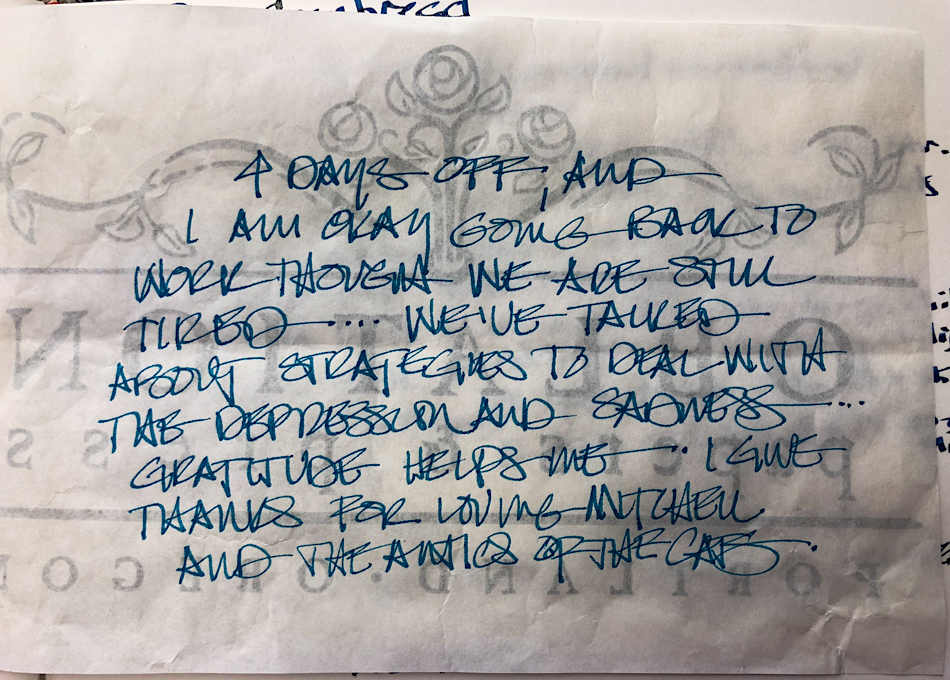 4 DAYS OFF, AND
I AM OKAY GOING BACK TO
WORK THOUGH WE ARE STILL
TIRED .... WE'VE TALKED
ABOUT STRATEGIES TO DEAL WITH
THE DEPRESSION AND SADNESS ...
GRATITUDE HELPS ME .. I GIVE
THANKS FOR LOVING MITCHELL
AND THE ANTICS OF THE CATS.